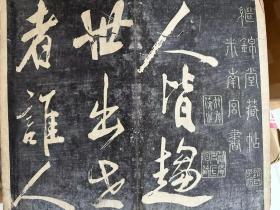 繼錦堂藏帖
米南宮書
人皆趨
世出世
者誰人